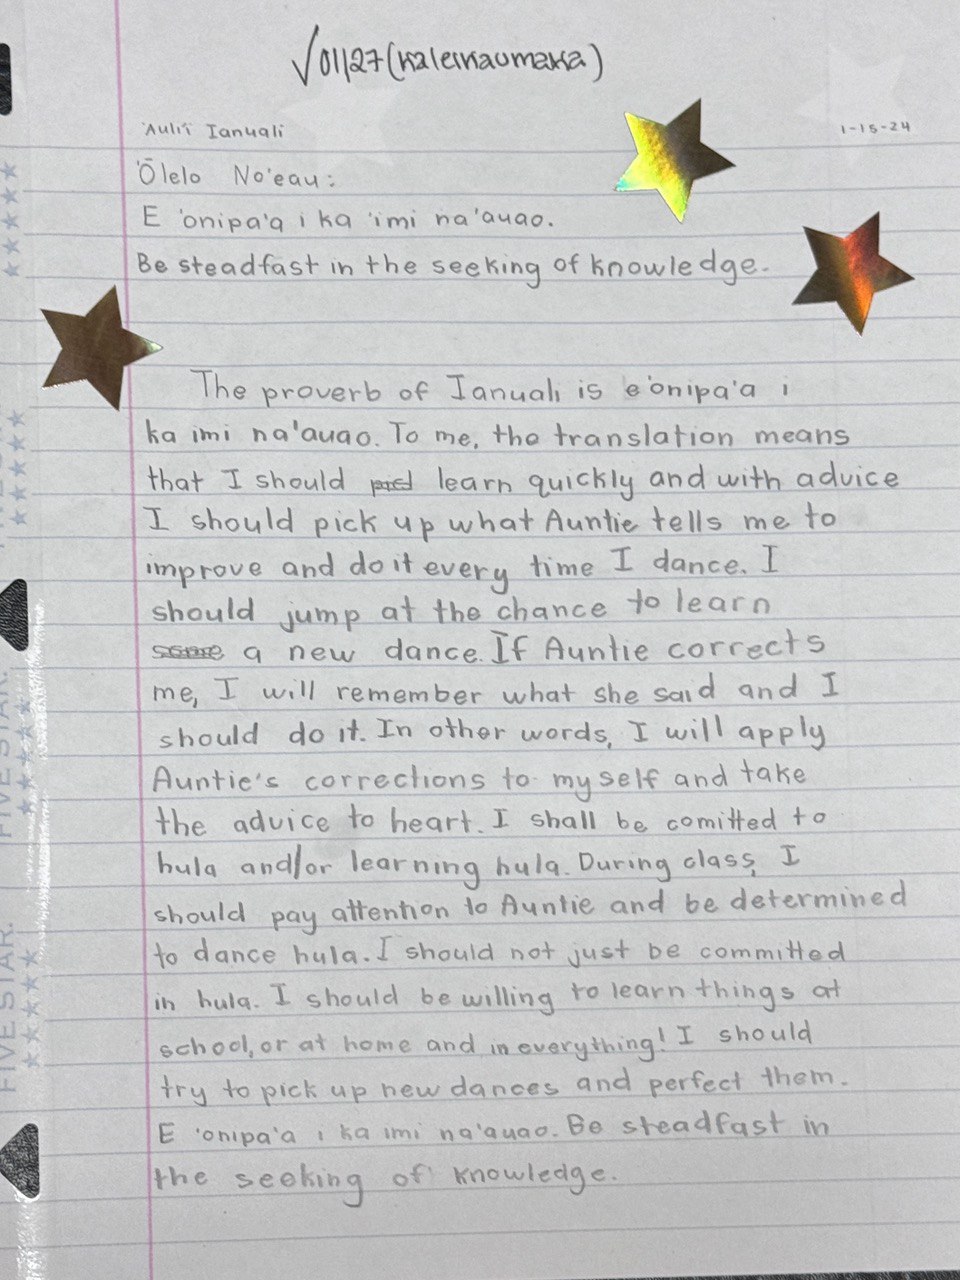 √01/27(Kaleikaumaka)
'Auli'i Ianuali
1-15-24
'Ōlelo No'eau:
E 'onipa'a i ka 'imi na'auao.
Be steadfast in the seeking of knowledge.
The proverb of Ianuali is e 'onipa'a i
ka imi na'auao. To me, the translation means
that I should learn quickly and with advice
I should pick up what Auntie tells me to
improve and do it every time I dance. I
should jump at the chance to learn
some a new dance. If Auntie corrects
me, I will remember what she said and I
should do it. In other words, I will apply
Auntie's corrections to myself and take
the advice to heart. I shall be comitted to
hula and/or learning hula. During class, I
should pay attention to Auntie and be determined
to dance hula. I should not just be committed
in hula. I should be willing to learn things at
school, or at home and in everything! I should
try to pick up new dances and perfect them.
E 'onipa'a i ka imi na'auao. Be steadfast in
the seeking of knowledge.
FIVE STAR.
FIVE STAR.